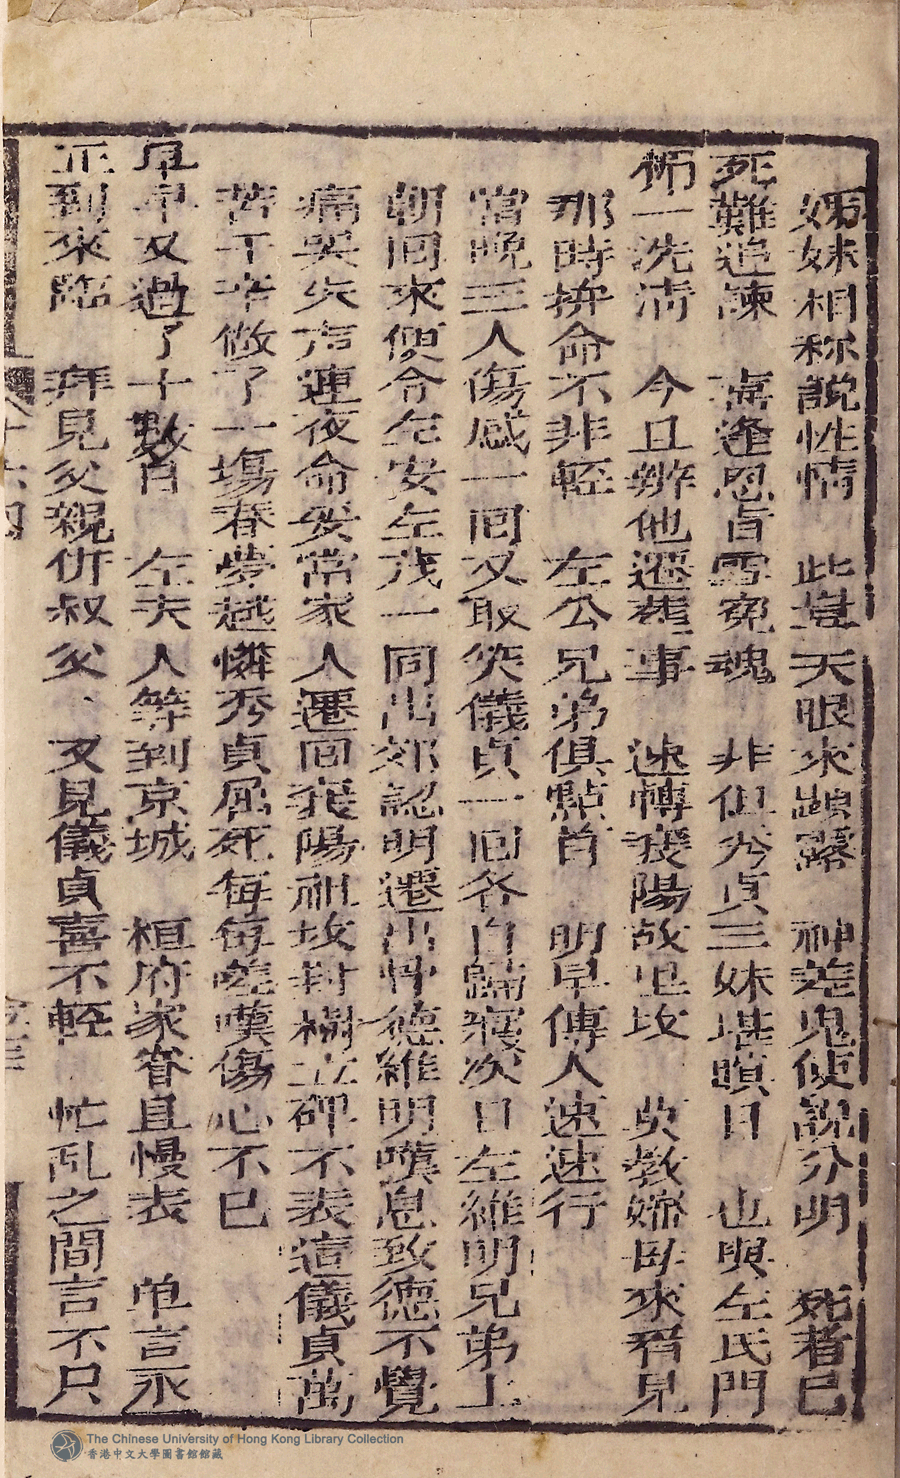 姊妹相称説性情　此豈天眼來顕露　神差鬼使説分明　死者已
死難追諫　喜逢恩旨雪寃魂　非但秀貞三妹堪瞑目　也與左氏門
楣一洗清　今且辦他遷舊事　速轉㐮陽故里坟　莫教婦
那時拚命不非輕　左公兄弟俱點首　明早傳人速速行
當晚三人傷感一囘又取笑儀貞一囘各自歸寢次日左維明兄弟上
朝回來便令左安左茂一同出郊認明遷出骨德維明嘆息致德不覺
痛哭失声連夜命安當家人遷回㐮陽祖坟封樹立碑不表這儀貞萬
苦千辛做了一塲春夢越憐秀貞屈死每每嗟嘆傷心不已
早早又過了十數日　左夫人等到京城　桓府家眷且慢表　单言丞
正到來臨　拜見父親併叔父、又見儀貞喜不輕　忙乱之間言不只
The Chinese University of Hong Kong Library Collection
香港中文大學圖書館館藏